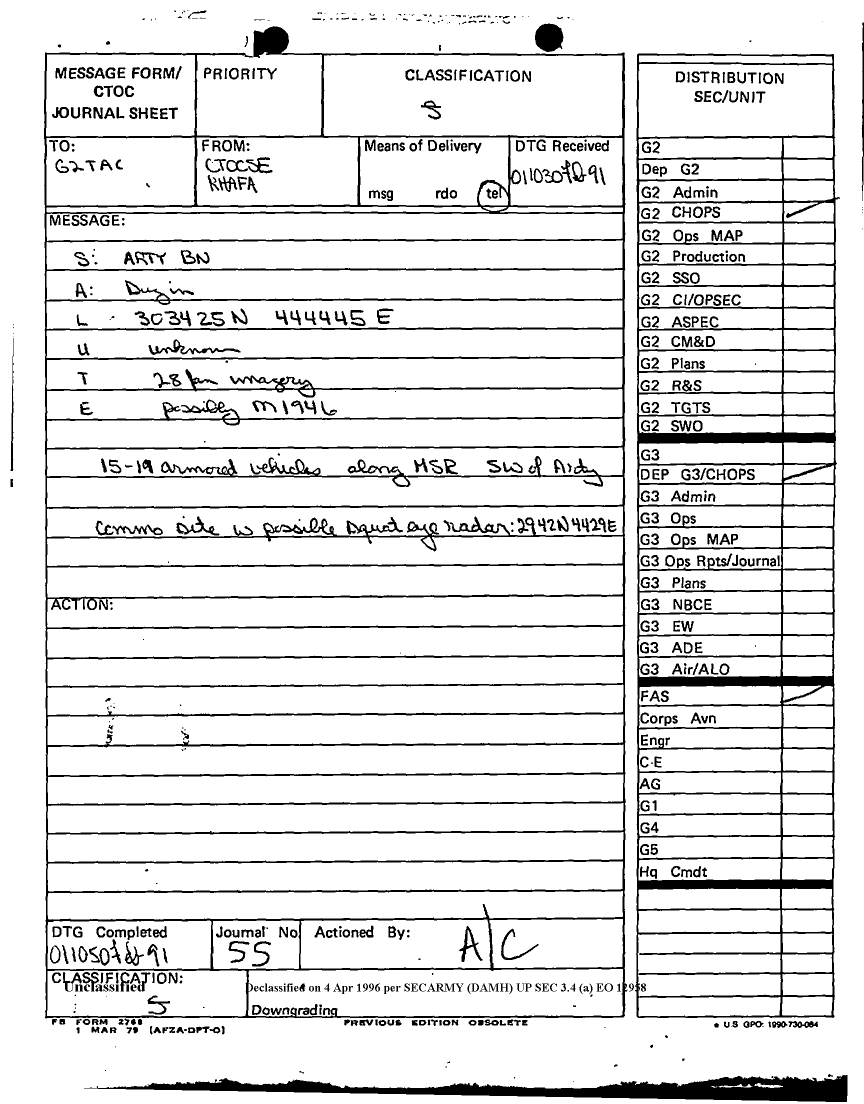 MESSAGE FORM/ CTOC JOURNAL SHEET
PRIORITY
CLASSIFICATION
S
TO:
G2TAC
FROM:
CTOCSE
RHAFA
Means of Delivery
msg rdo tel
DTG Received
011030 Feb 91
MESSAGE:
S: ARTY BN
A: Dug in
L - 303425N 444445E
U unknown
T 28 Jan imagery
E possibly M1946
15-19 armored vehicles along MSR SW of
Commo site w possible squat eye radar: 2942N4429E
ACTION:
DTG Completed
011050 Feb 91
Journal No
55
Actioned By:
A/C
CLASSIFICATION:
Unclassified
S
Declassified on 4 Apr 1996 per SECARMY (DAMH) UP SEC 3.4 (a) EO 12958
Downgrading
FB FORM 2768
1 MAR 79 (AFZA-DPT-O)
PREVIOUS EDITION OBSOLETE
DISTRIBUTION
SEC/UNIT
G2
Dep G2
G2 Admin
G2 CHOPS
G2 Ops MAP
G2 Production
G2 SSO
G2 CI/OPSEC
G2 ASPEC
G2 CM&D
G2 Plans
G2 R&S
G2 TGTS
G2 SWO
G3
DEP G3/CHOPS
G3 Admin
G3 Ops
G3 Ops MAP
G3 Ops Rpts/Journal
G3 Plans
G3 NBCE
G3 EW
G3 ADE
G3 Air/ALO
FAS
Corps Avn
Engr
C-E
AG
G1
G4
G5
Hq Cmdt
U.S GPO: 1990-730-084